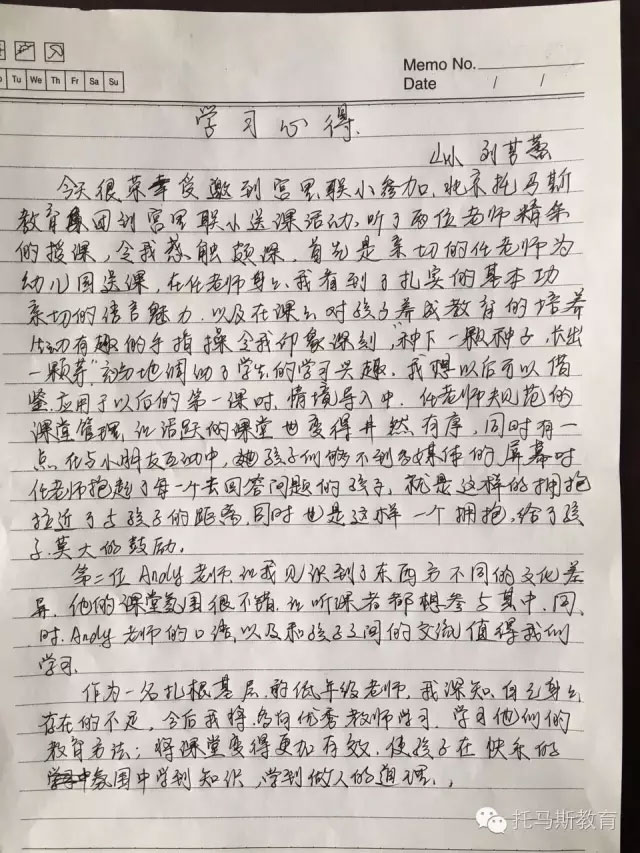 Memo No.
Date / /
Tu We Th Fr Sa Su
学习心得.
刘芸蕙
今天很荣幸受邀到宫里联小参加,北京托马斯
教育集团到宫里联小送课活动,听了两位老师精条
的授课,令我感触颇深,首先是亲切的任老师为
幼儿园送课,在任老师身上,我看到了扎实的基本功
亲切的语言魅力,以及在课上对孩子养成教育的培养
生动有趣的手指操令我印象深刻,"种下一颗种子,长出
一颗芽"充分地调动了学生的学习兴趣,我想以后可以借
鉴,应用于以后的第一课时,情境导入中.任老师规范的
课堂管理,让活跃的课堂也变得井然有序,同时有一
点,在与小朋友互动中,孩子们够不到多媒体的屏幕时
任老师抱起了每一个去回答问题的孩子,就是这样的拥抱
拉近了与孩子的距离,同时也是这样一个拥抱,给了孩
子莫大的鼓励.
第二位Andy老师,让我见识到了东西方不同的文化差
异,他的课堂氛围很不错,让听课者都想参与其中,同
时,Andy老师的口语,以及和孩子之间的交流值得我们
学习.
作为一名扎根基层的低年级老师,我深知自己身上
存在的不足,今后我将,多向优秀教师学习,学习他们的
教育方法;将课堂变得更加有效,使孩子在快乐的
氛围中学到知识,学到做人的道理.
托马斯教育